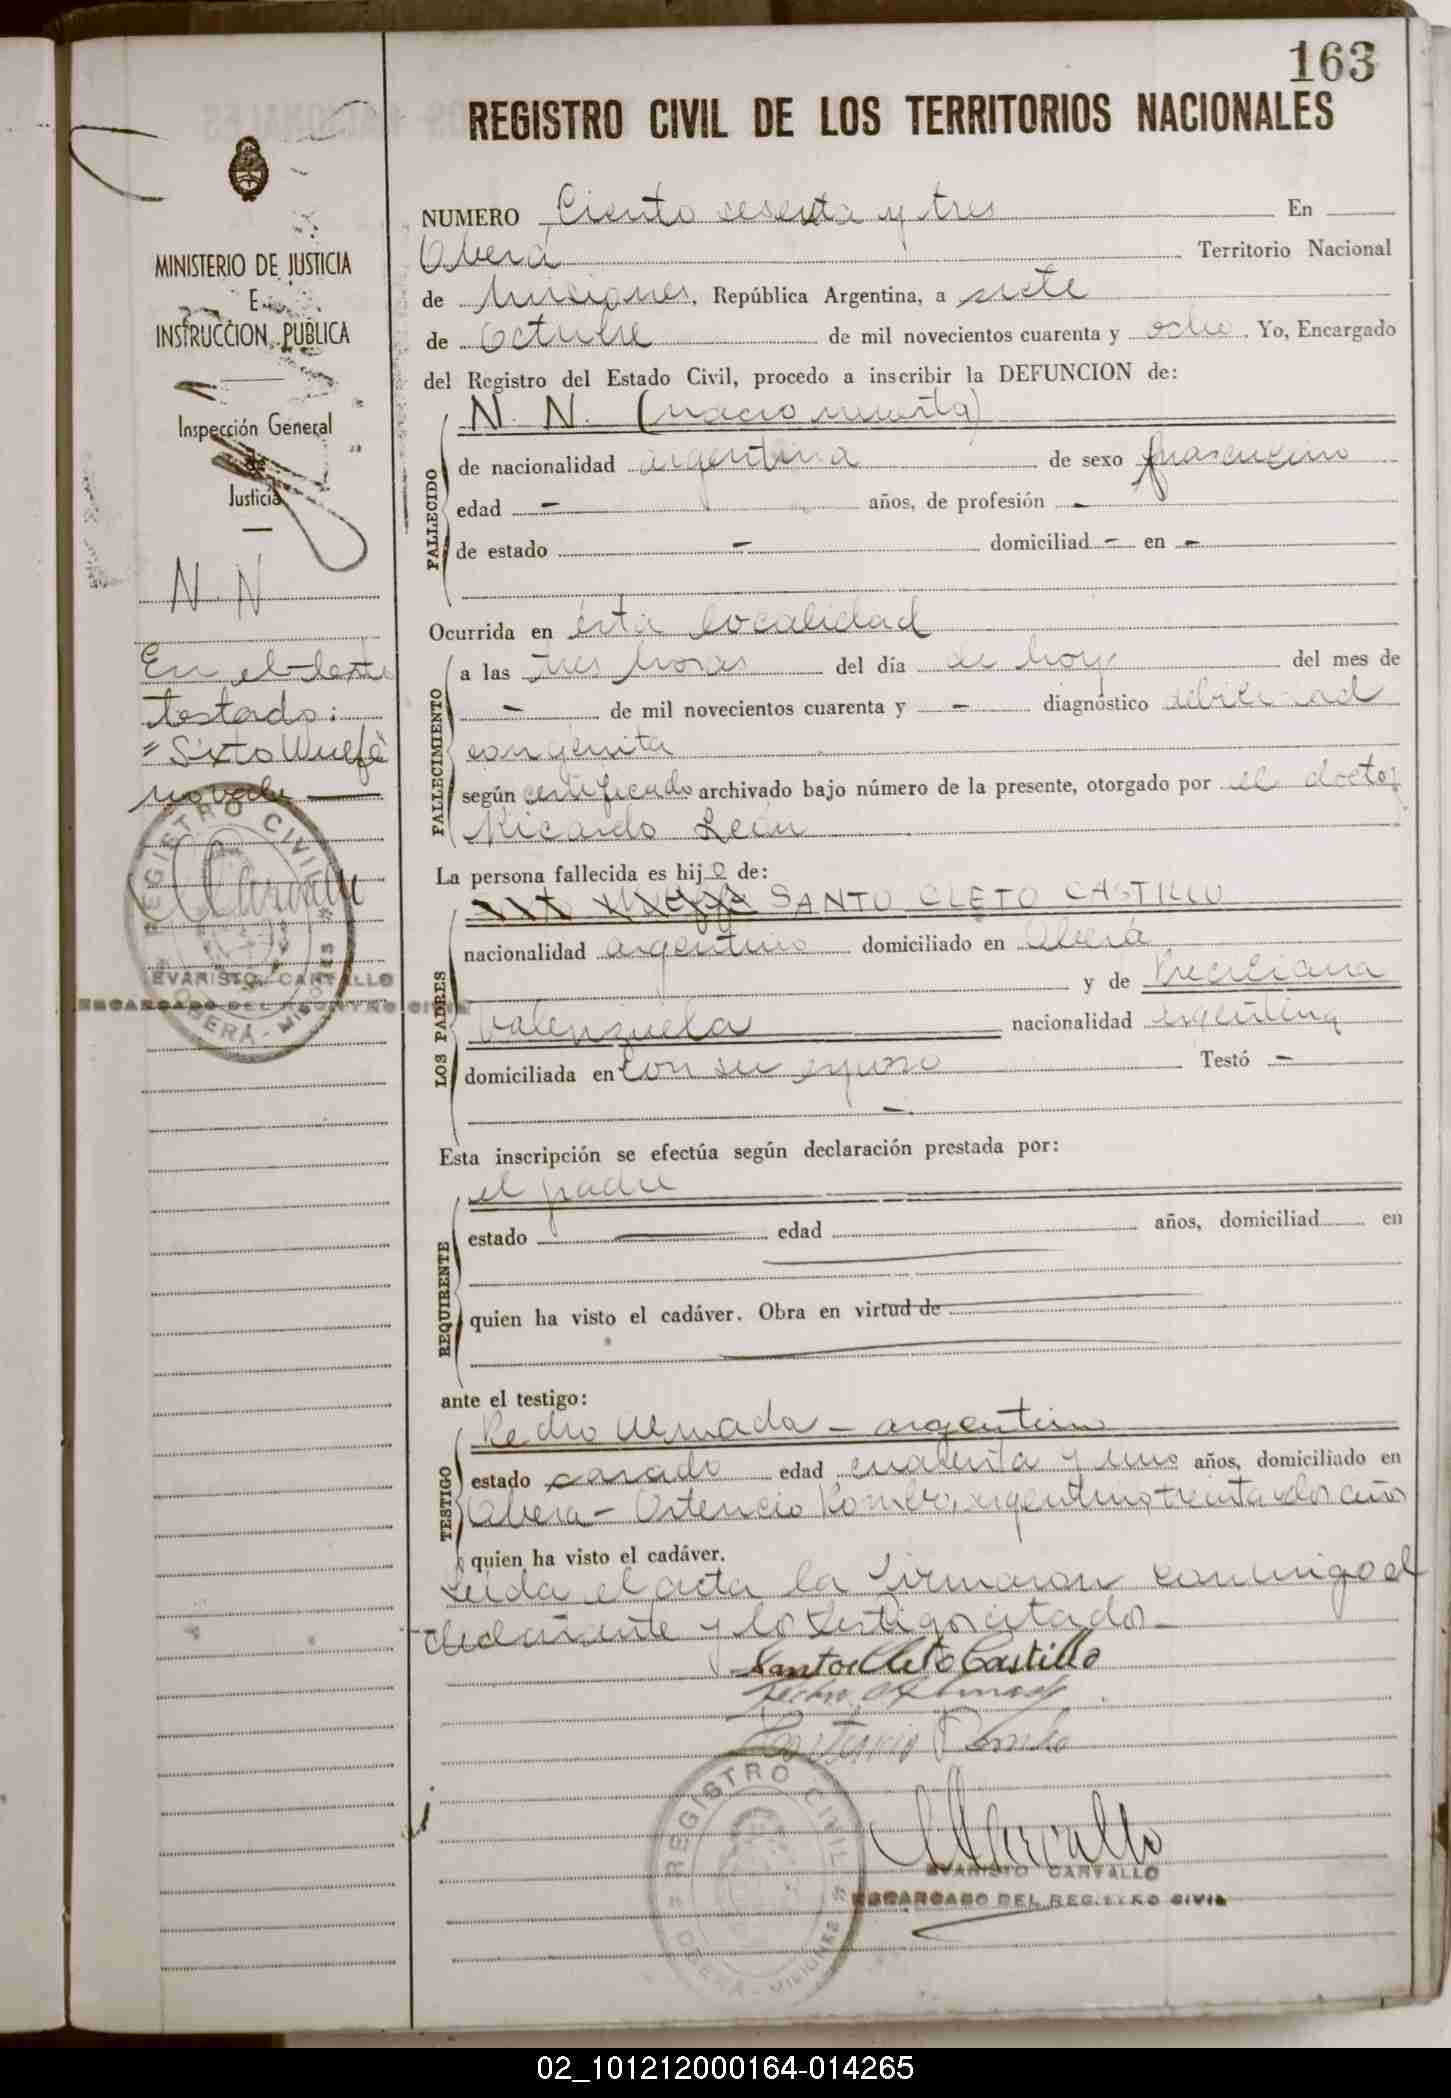 163
REGISTRO CIVIL DE LOS TERRITORIOS NACIONALES
MINISTERIO DE JUSTICIA
E
INSTRUCCION PUBLICA
Inspección General
de
Justicia
N. N
En el texto
testado:
"Sixto Wuelfe"
no vale
REGISTRO CIVIL
OBERÁ - MISIONES
EVARISTO CARVALLO
ENCARGADO DEL REGISTRO CIVIL
NUMERO Ciento sesenta y tres En
Oberá Territorio Nacional
de Misiones, República Argentina, a siete
de Octubre de mil novecientos cuarenta y ocho. Yo, Encargado
del Registro del Estado Civil, procedo a inscribir la DEFUNCION de:
N. N. (nacio muerta)
FALLECIDO
de nacionalidad argentina de sexo masculino
edad - años, de profesión -
de estado - domiciliad - en -
Ocurrida en ésta localidad
FALLECIMIENTO
a las tres horas del día de hoy del mes de
- de mil novecientos cuarenta y - diagnóstico debilidad
congénita
según certificado archivado bajo número de la presente, otorgado por el doctor
Ricardo León
La persona fallecida es hijo de:
LOS PADRES
SANTO CLETO CASTILLO
nacionalidad argentino domiciliado en Oberá
y de
Valenzuela nacionalidad argentina
domiciliada en Con su esposo Testó -
-
Esta inscripción se efectúa según declaración prestada por:
REQUIRENTE
el padre
estado edad años, domiciliad en
quien ha visto el cadáver. Obra en virtud de
ante el testigo:
TESTIGO
Pedro Almada - argentino
estado casado edad cuarenta y uno años, domiciliado en
Oberá - Ortencio Romero, argentino, treinta años
quien ha visto el cadáver.
Leida el acta la firmaron conmigo el
declarante y los testigos citados -
Santos Cleto Castillo
Pedro Almada
REGISTRO CIVIL
OBERÁ - MISIONES
Carvallo
EVARISTO CARVALLO
ENCARGADO DEL REGISTRO CIVIL
02_101212000164-014265